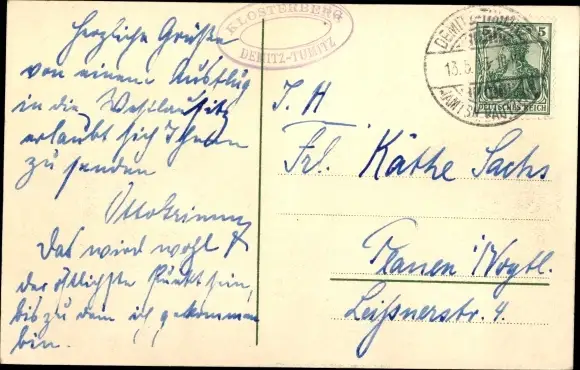 Herzliche Grüße
von einem Ausflug
in die Westlausitz
erlaubt sich Ihnen
zu senden
Otto Grimm
Das wird wohl
der östlichste Punkt sein,
bis zu dem ich gekommen
bin.
KLOSTERBERG
DEMITZ-THUMITZ
DEMITZ-THUM
13.5.
5
DEUTSCHES REICH
T. H
Frl. Käthe Sachs
Plauen i/Vogtl.
Leißnerstr. 4.